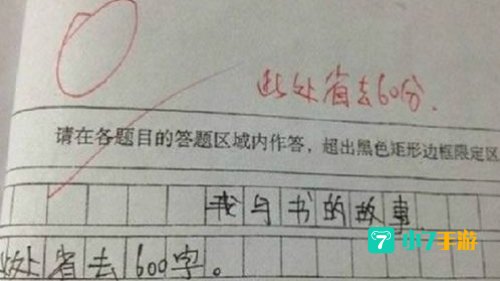 此处省去60分.
请在各题目的答题区域内作答，超出黑色矩形边框限定区
我与书的故事
此处省去600字。
7 小7手游